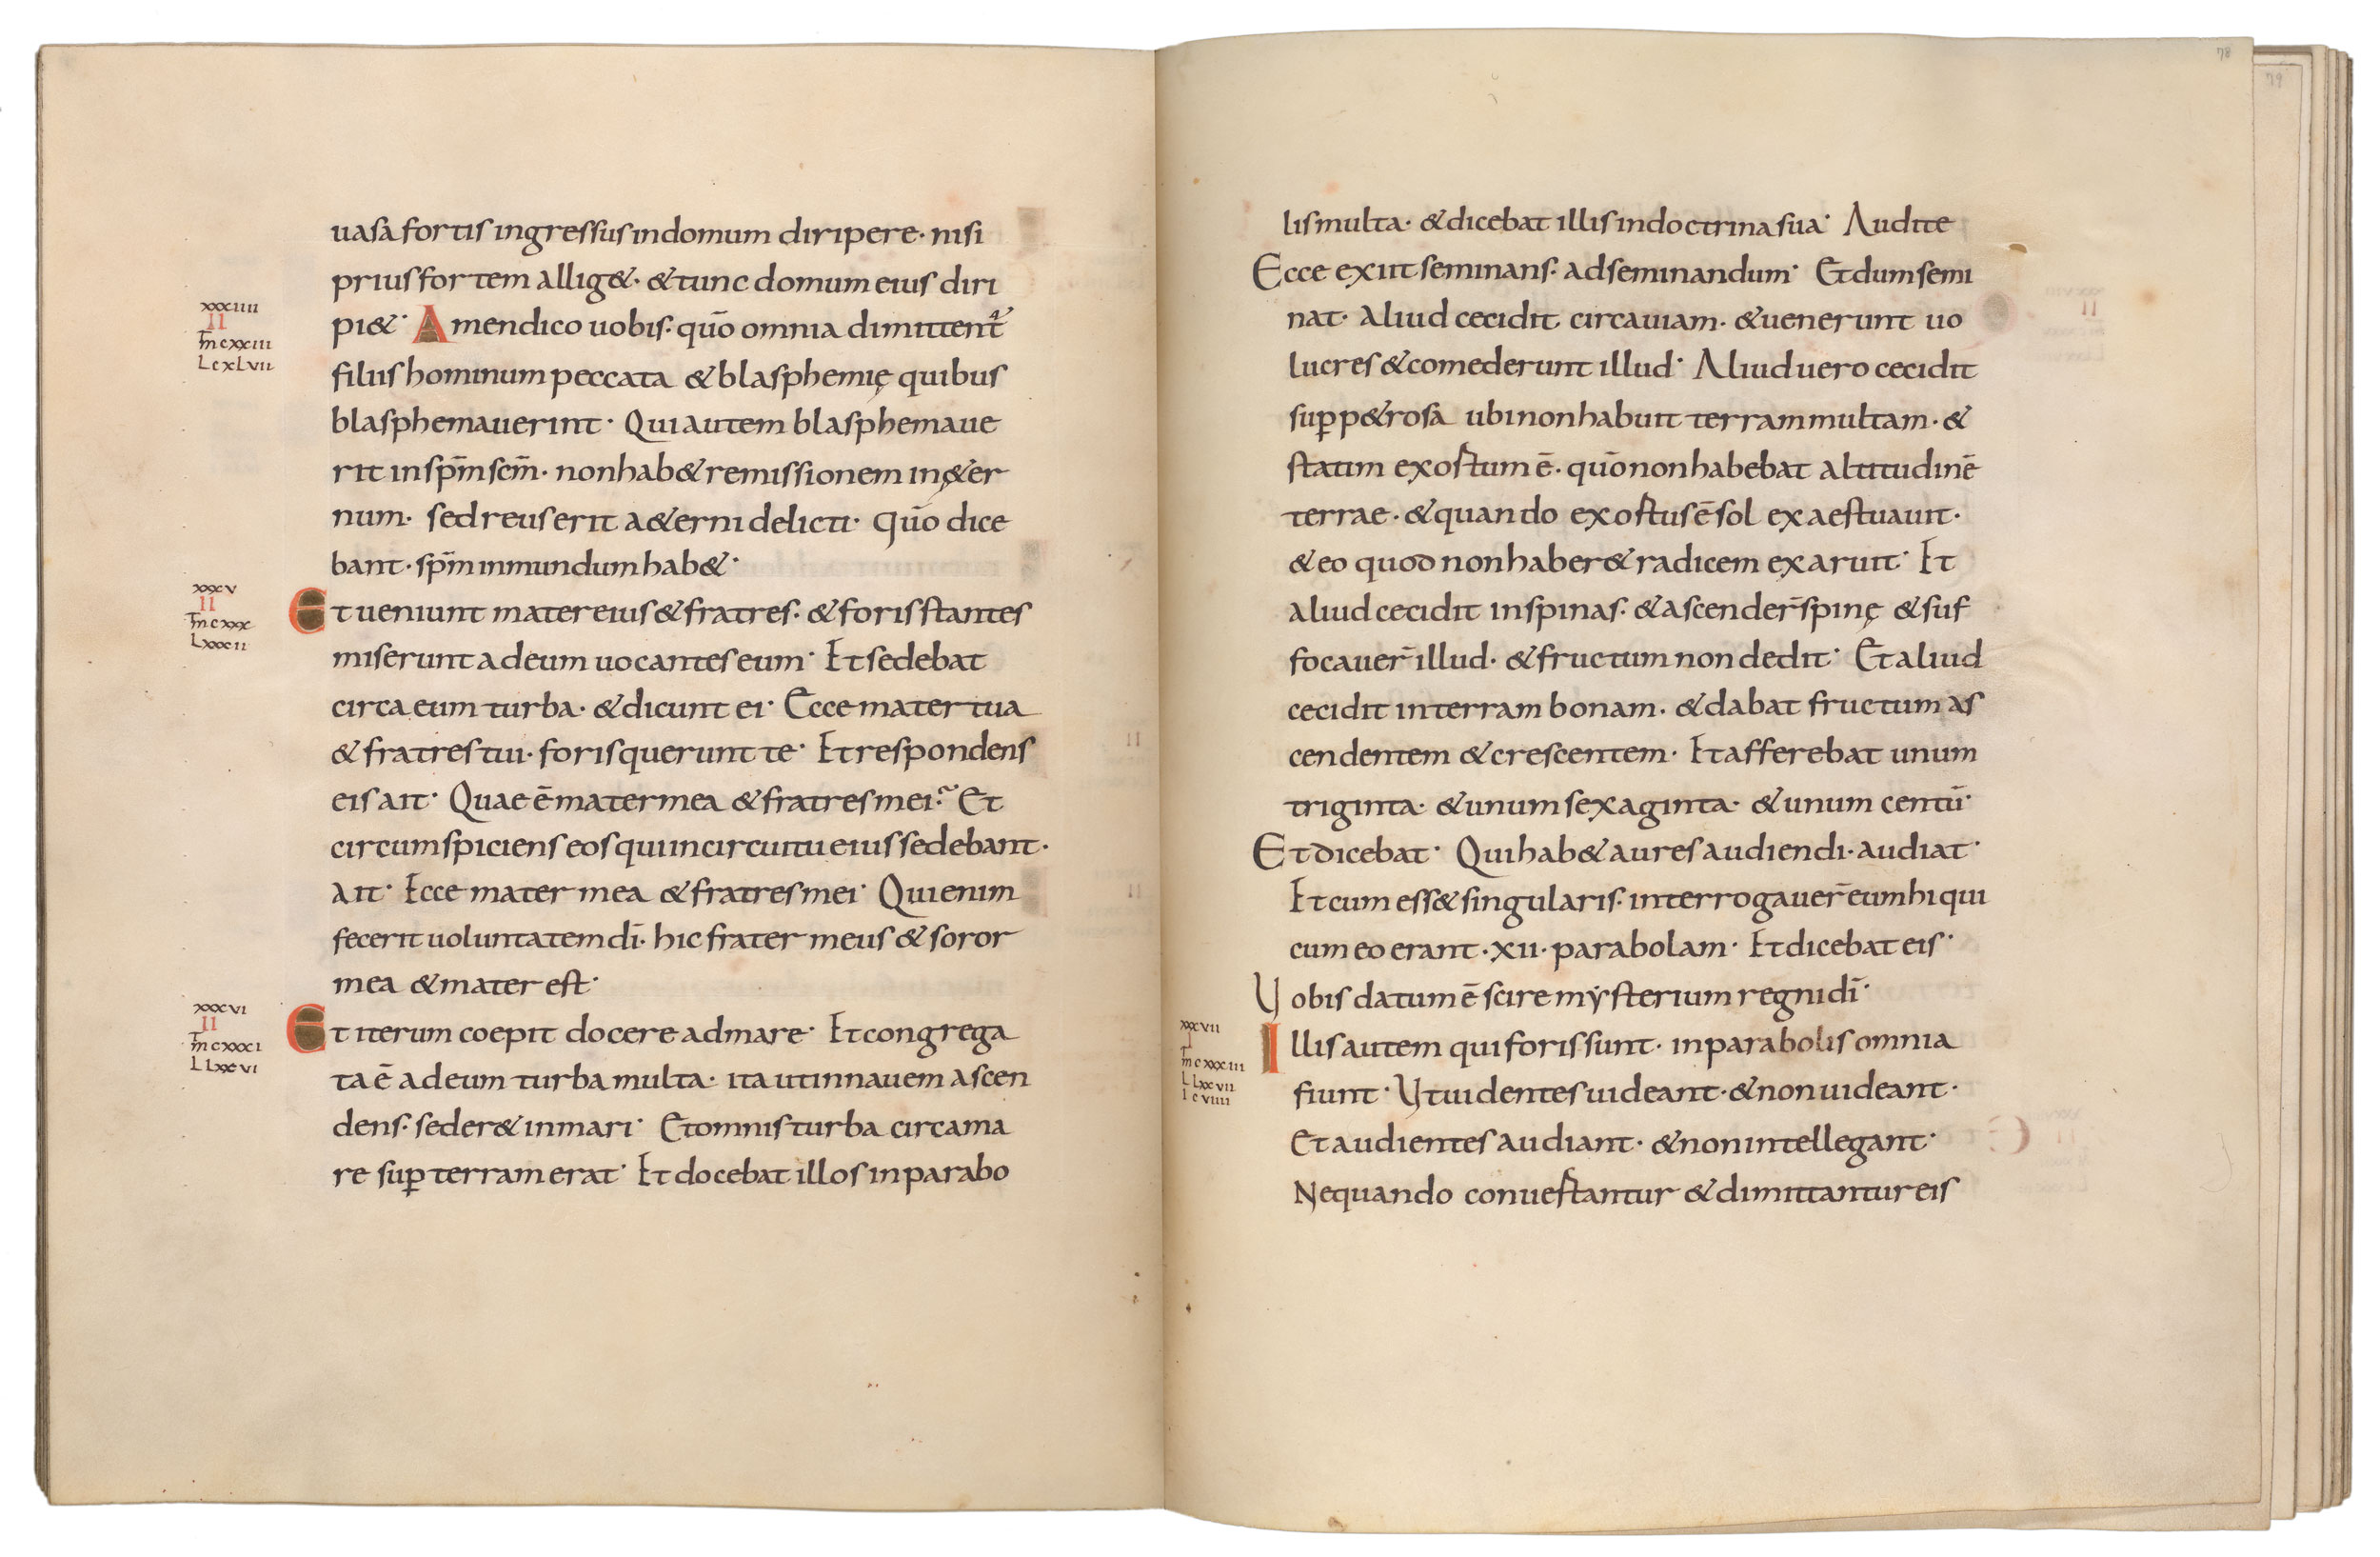 uasa fortis ingressus in domum diripere· nisi
prius fortem allig&· & tunc domum eius diri
xxxiiii
II
pi&· Amen dico uobis· qūo omnia dimittent᷑
mt cxxiii
L cxLvii
filiis hominum peccata & blasphemię quibus
blasphemauerint· Qui autem blasphemaue
rit in sp̄m sc̄m· non hab& remissionem in ę&er
num· sed reus erit a&erni delicti· Qūo dice
bant· sp̄m inmundum hab&·
xxxv
II
mt cxxx
Lxxxii
Et ueniunt mater eius & fratres· & foris stantes
miserunt ad eum uocantes eum· Et sedebat
circa eum turba· & dicunt ei· Ecce mater tua
& fratres tui· foris querunt te· Et respondens
eis ait· Quae ē mater mea & fratres mei? Et
circumspiciens eos qui in circuitu eius sedebant·
ait· Ecce mater mea & fratres mei· Qui enim
fecerit uoluntatem dī· hic frater meus & soror
mea & mater est·
xxxvi
II
mt cxxxi
L Lxxvi
Et iterum coepit docere ad mare· Et congrega
ta ē ad eum turba multa· ita ut in nauem ascen
dens· seder& in mari· Et omnis turba circa ma
re sup̱ terram erat· Et docebat illos in parabo
78
79
lis multa· & dicebat illis in doctrina sua· Audite
Ecce exiit seminans· ad seminandum· Et dum semi
nat· aliud cecidit circa uiam· & uenerunt uo
lucres & comederunt illud· Aliud uero cecidit
sup̱ p&rosa ubi non habuit terram multam· &
statim exortum ē· qūo non habebat altitudinē
terrae· & quando exortus ē sol exaestuauit·
& eo quod non haber& radicem exaruit· Et
aliud cecidit in spinas· & ascender̄ spinę & suf
focauer̄ illud· & fructum non dedit· Et aliud
cecidit in terram bonam· & dabat fructum as
cendentem & crescentem· Et afferebat unum
triginta· & unum sexaginta· & unum centū·
Et dicebat· Qui hab& aures audiendi· audiat·
Et cum ess& singularis· interrogauer̄ eum hi qui
cum eo erant· xii· parabolam· Et dicebat eis·
Vobis datum ē scire mẏsterium regni dī·
xxxvii
I
mt cxxxiii
L Lxxvii
I cviiii
Illis autem qui foris sunt· in parabolis omnia
fiunt· Vt uidentes uideant· & non uideant·
Et audientes audiant· & non intellegant·
Nequando conuertantur & dimittantur eis